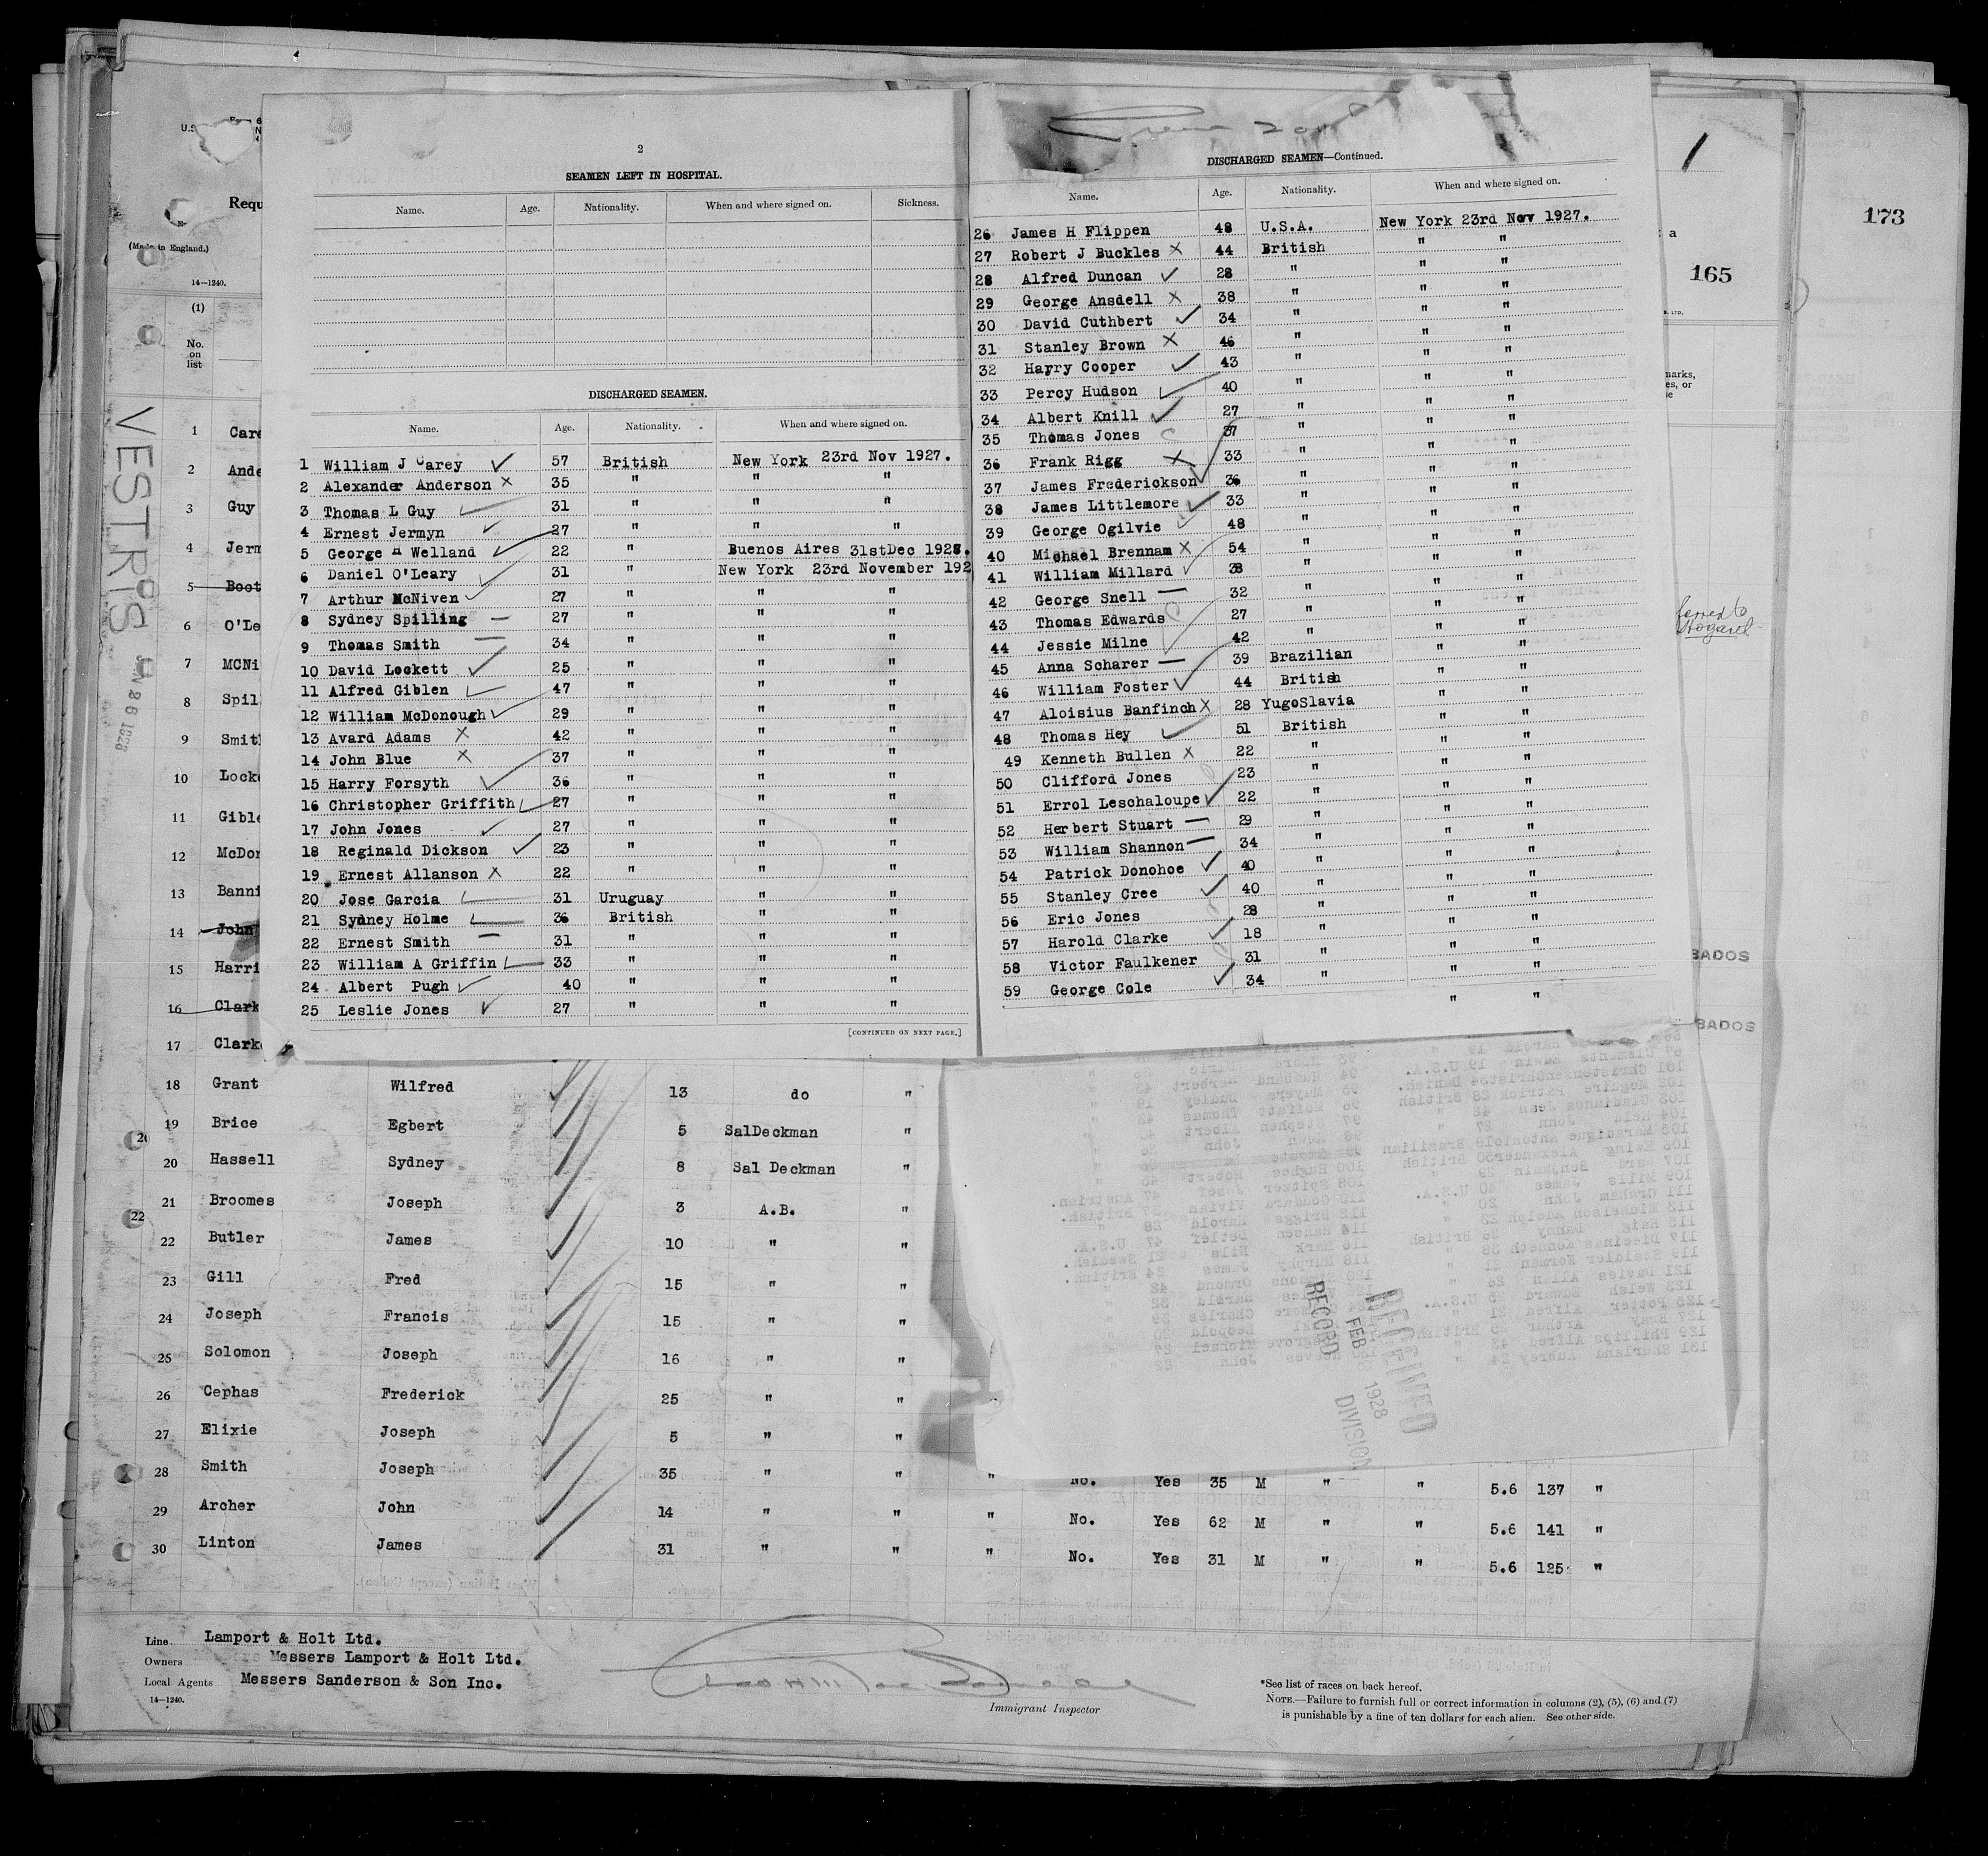 2
SEAMEN LEFT IN HOSPITAL.
Name. Age. Nationality. When and where signed on. Sickness.
DISCHARGED SEAMEN.
Name. Age. Nationality. When and where signed on.
1 William J Carey 57 British New York 23rd Nov 1927.
2 Alexander Anderson X 35 " " "
3 Thomas L Guy 31 " " "
4 Ernest Jermyn 27 " " "
5 George H Welland 22 " Buenos Aires 31stDec 1928.
6 Daniel O'Leary 31 " New York 23rd November 192
7 Arthur McNiven 27 " " "
8 Sydney Spilling 27 " " "
9 Thomas Smith 34 " " "
10 David Lockett 25 " " "
11 Alfred Giblen 47 " " "
12 William McDonough 29 " " "
13 Avard Adams X 42 " " "
14 John Blue X 37 " " "
15 Harry Forsyth 36 " " "
16 Christopher Griffith 27 " " "
17 John Jones 27 " " "
18 Reginald Dickson 23 " " "
19 Ernest Allanson X 22 " " "
20 Jose Garcia 31 Uruguay " "
21 Sydney Holme 36 British " "
22 Ernest Smith 31 " " "
23 William A Griffin 33 " " "
24 Albert Pugh 40 " " "
25 Leslie Jones 27 " " "
[CONTINUED ON NEXT PAGE.]
DISCHARGED SEAMEN—Continued.
Name. Age. Nationality. When and where signed on.
26 James H Flippen 48 U.S.A. New York 23rd Nov 1927.
27 Robert J Buckles X 44 British " "
28 Alfred Duncan 28 " " "
29 George Ansdell X 38 " " "
30 David Cuthbert 34 " " "
31 Stanley Brown X 46 " " "
32 Harry Cooper 43 " " "
33 Percy Hudson 40 " " "
34 Albert Knill 27 " " "
35 Thomas Jones 37 " " "
36 Frank Rigg X 33 " " "
37 James Frederickson 36 " " "
38 James Littlemore 33 " " "
39 George Ogilvie 48 " " "
40 Michael Brennam X 54 " " "
41 William Millard 38 " " "
42 George Snell 32 " " "
43 Thomas Edwards 27 " " "
44 Jessie Milne 42 " " "
45 Anna Scharer 39 Brazilian " "
46 William Foster 44 British " "
47 Aloisius Banfinch X 28 YugoSlavia " "
48 Thomas Hey 51 British " "
49 Kenneth Bullen X 22 " " "
50 Clifford Jones 23 " " "
51 Errol Leschaloupe 22 " " "
52 Herbert Stuart 29 " " "
53 William Shannon 34 " " "
54 Patrick Donohoe 40 " " "
55 Stanley Cree 40 " " "
56 Eric Jones 28 " " "
57 Harold Clarke 18 " " "
58 Victor Faulkener 31 " " "
59 George Cole 34 " " "
" "
173
165
U.S.
Requ
(Made in England.)
14—1240.
(1)
No. on list
VESTRIS
1928
1 Care
2 Ande
3 Guy
4 Jerm
5 Boot
6 O'Le
7 MCNi
8 Spil
9 Smit
10 Locke
11 Gible
12 McDon
13 Banni
14 John
15 Harri
16 Clark
17 Clark
BADOS
BADOS
18 Grant Wilfred 13 do "
19 Brice Egbert 5 SalDeckman "
20 Hassell Sydney 8 Sal Deckman "
21 Broomes Joseph 3 A.B. "
22
22 Butler James 10 " "
23 Gill Fred 15 " "
24 Joseph Francis 15 " "
25 Solomon Joseph 16 " "
26 Cephas Frederick 25 " "
27 Elixie Joseph 5 " "
28 Smith Joseph 35 " " " No. Yes 35 M " " 5.6 137 "
29 Archer John 14 " " " No. Yes 62 M " " 5.6 141 "
30 Linton James 31 " " " No. Yes 31 M " " 5.6 125 "
RECEIVED
FEB 1928
RECORD DIVISION
Line Lamport & Holt Ltd.
Owners Messers Lamport & Holt Ltd.
Local Agents Messers Sanderson & Son Inc.
14—1240.
Immigrant Inspector
*See list of races on back hereof.
NOTE.—Failure to furnish full or correct information in columns (2), (5), (6) and (7)
is punishable by a fine of ten dollars for each alien. See other side.